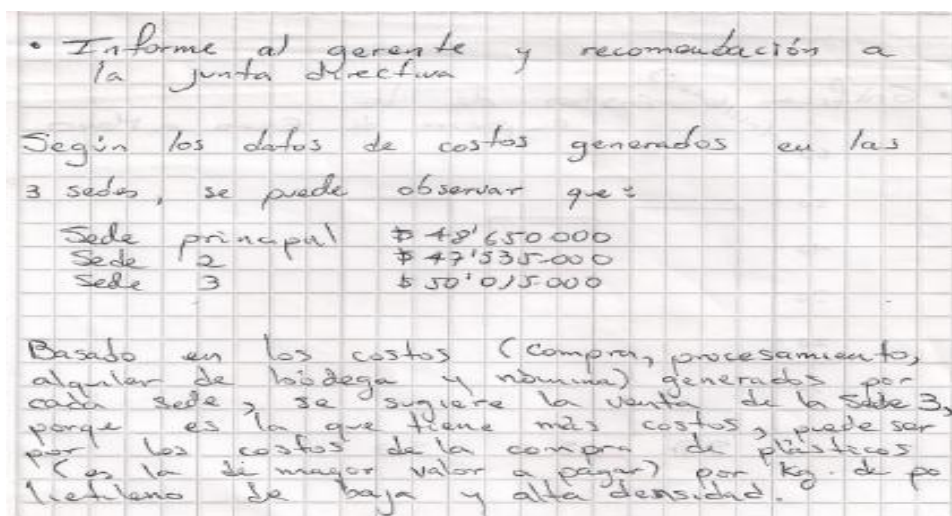 • Informe al gerente y recomendación a
la junta directiva
Según los datos de costos generados en las
3 sedes, se puede observar que:
Sede principal $ 48'650.000
Sede 2 $ 47'535.000
Sede 3 $ 50'015.000
Basado en los costos (compra, procesamiento,
alquiler de bodega y nómina) generados por
cada sede, se sugiere la venta de la Sede 3,
porque es la que tiene más costos, puede ser
por los costos de la compra de plásticos
(es la de mayor valor a pagar) por kg. de po
lietileno de baja y alta densidad.